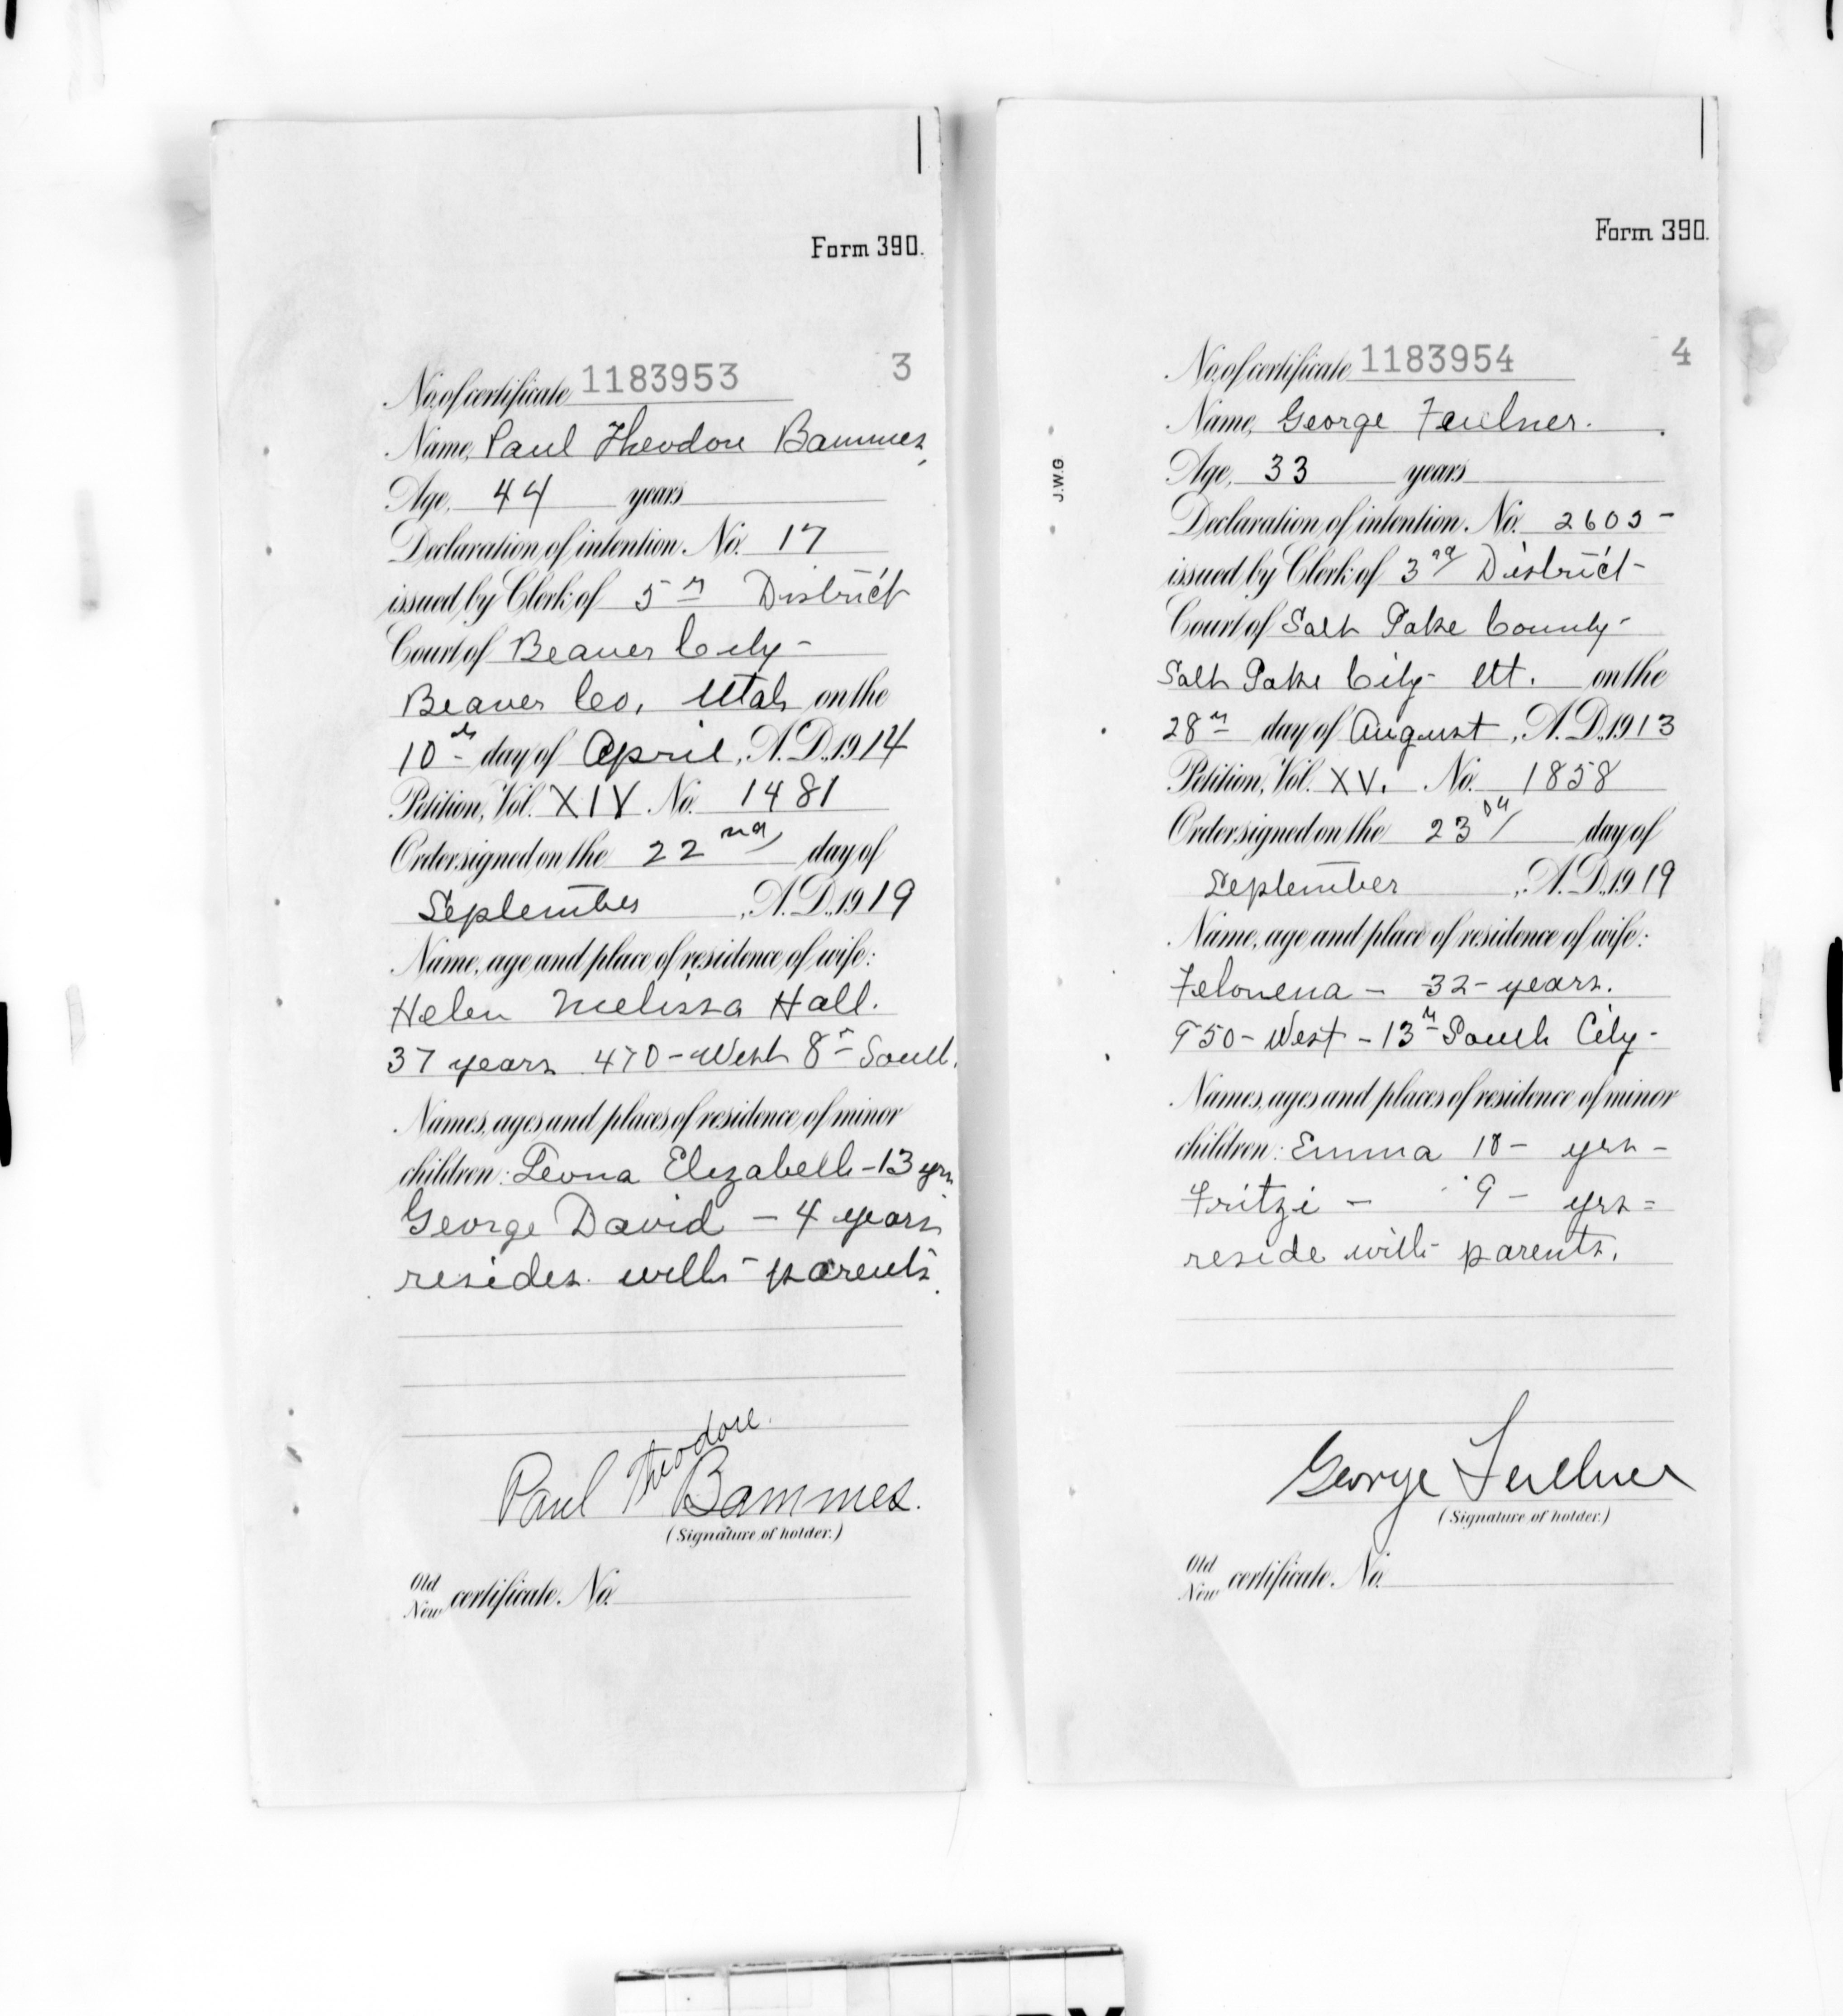 Form 390.
No. of certificate 1183953 3
Name, Paul Theodore Bammes,
Age, 44 years
Declaration of intention. No. 17
issued by Clerk of 5th District
Court of Beaver City -
Beaver Co, Utah on the
10th day of April, A.D., 1914
Petition, Vol. XIV No. 1481
Order signed on the 22nd day of
September, A.D., 1919
Name, age and place of residence of wife:
Helen Melissa Hall.
37 years 470 - West 8th South.
Names, ages and places of residence of minor
children: Leona Elizabeth - 13 yrs
George David - 4 years
resides with parents.
Paul Theodore Bammes.
(Signature of holder.)
Old New certificate. No.
Form 390.
J.W.G
No. of certificate 1183954 4
Name, George
Age, 33 years
Declaration of intention. No. 2603 -
issued by Clerk of 3rd District -
Court of Salt Lake County -
Salt Lake City - Ut. on the
28th day of August, A.D., 1913
Petition, Vol. XV. No. 1858
Order signed on the 23rd day of
September, A.D., 1919
Name, age and place of residence of wife:
Felomena - 32 - years.
950 - West - 13th South City -
Names, ages and places of residence of minor
children: Emma 10 - yrs -
Fritzi - 9 - yrs =
reside with parents.
George
(Signature of holder.)
Old New certificate. No.